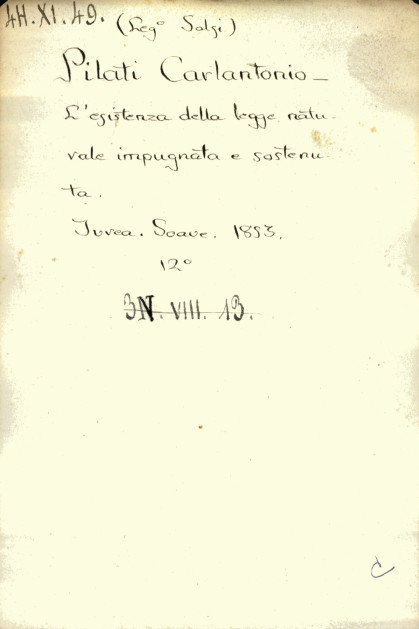 4H.XI.49. (Leg° Salgi)
Pilati Carlantonio_
L'esistenza della legge natu-
rale impugnata e sostenu-
ta.
Ivrea. Soave. 1853.
12°
3N. VIII. 13.
C